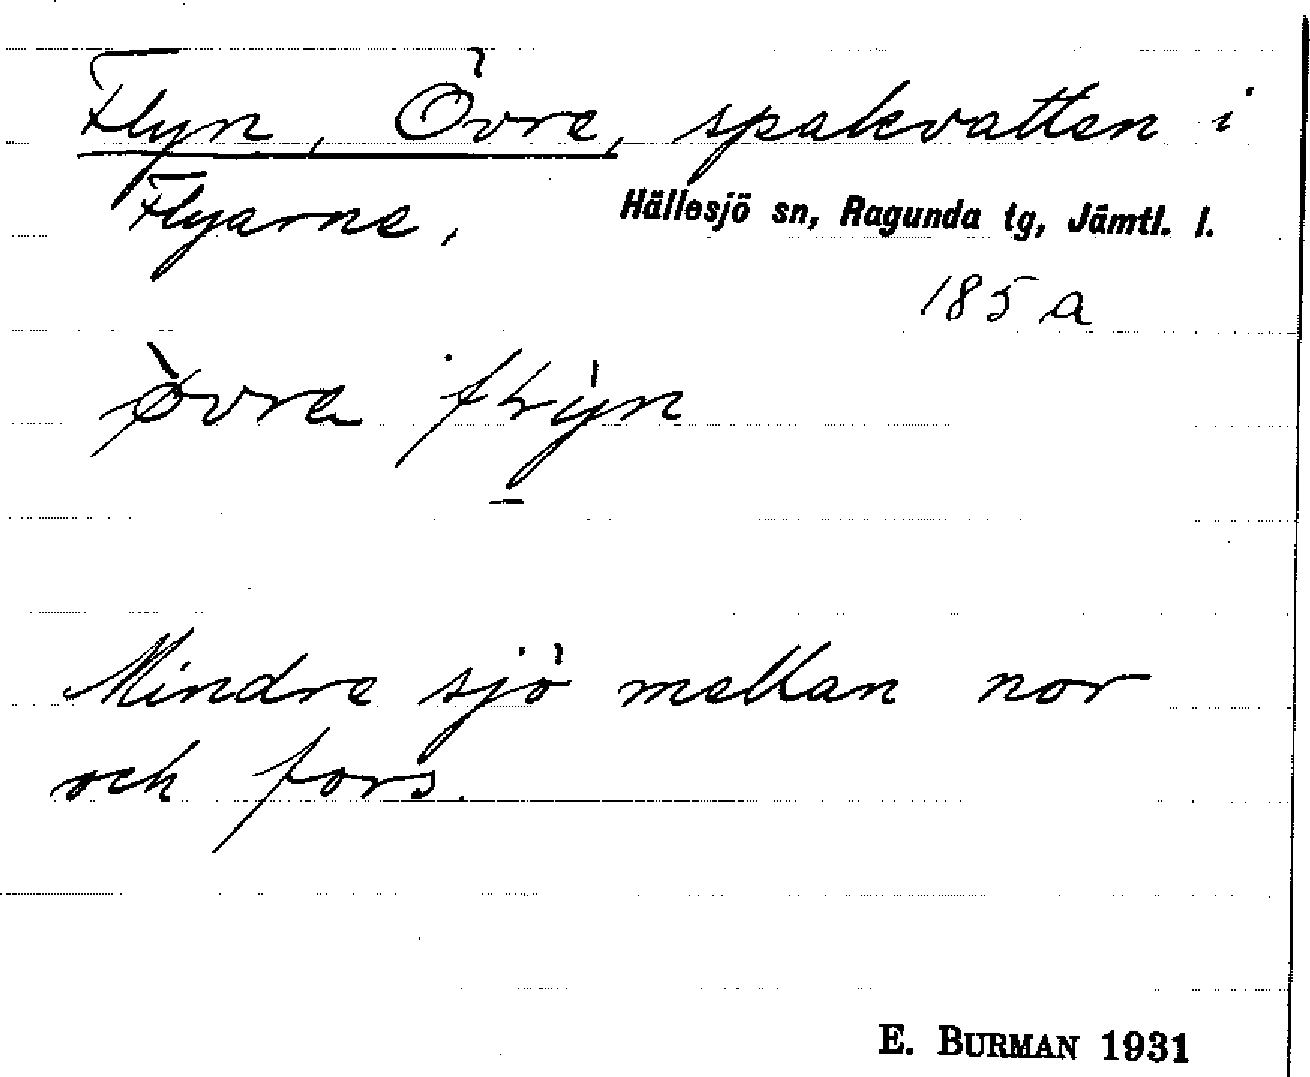 Flyn, Övre, spakvatten i
Flyarne, Hällesjö sn, Ragunda tg, Jämtl. l.
185 a
ø̀vra flýn
Mindre sjö mellan nor
och fors.
E. BURMAN 1931